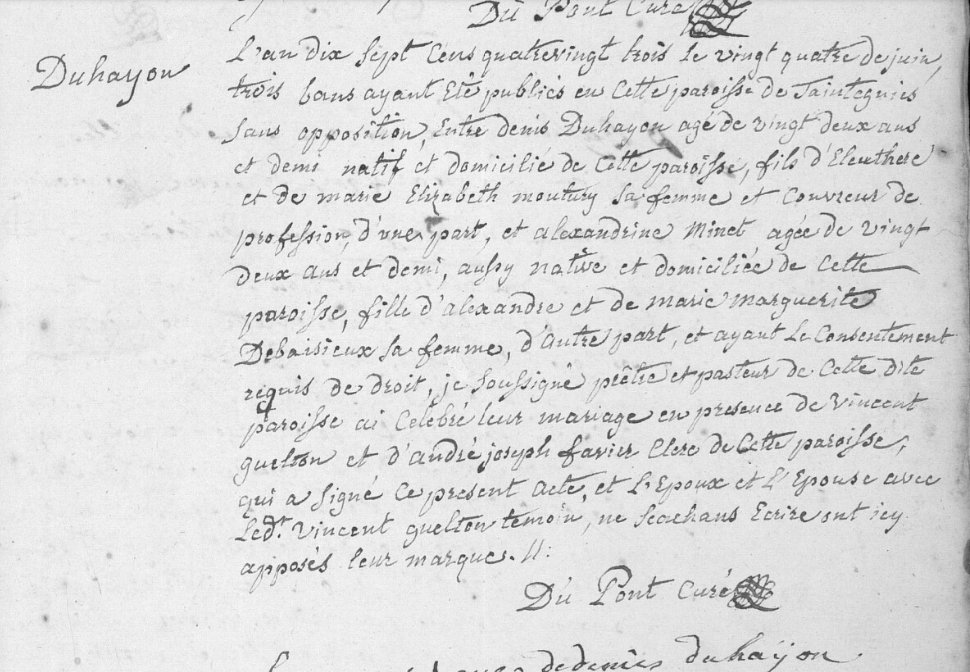 Du Pont Curé
Duhayon
L'an dix sept Cens quatrevingt trois le vingt quatre de juin,
trois bans ayant Eté publiés en Cette paroisse de Sainteguies
sans opposition, Entre denis Duhayon agé de vingt deux ans
et demi natif et domicilié de Cette paroisse, fils d'Eleuthere
et de marie Elizabeth moutury sa femme et Couvreur de
profession, d'une part, et alexandrine Minet agée de vingt
deux ans et demi, aussy native et domiciliée de Cette
paroisse, fille d'alexandre et de marie marguerite
Debaisieux sa femme, d'autre part, et ayant Le Consentement
requis de droit, je soussigné prêtre et pasteur de Cette dite
paroisse ai Célébré leur mariage en presence de Vincent
guelton et d'andré joseph favier Clerc de Cette paroisse,
qui a signé Ce present Acte, et L'Epoux et L'Epouse avec
Ledt. Vincent guelton temoin, ne scachans Ecrire ont icy
apposés leur marque. //.
Du Pont Curé
de denis duhayon